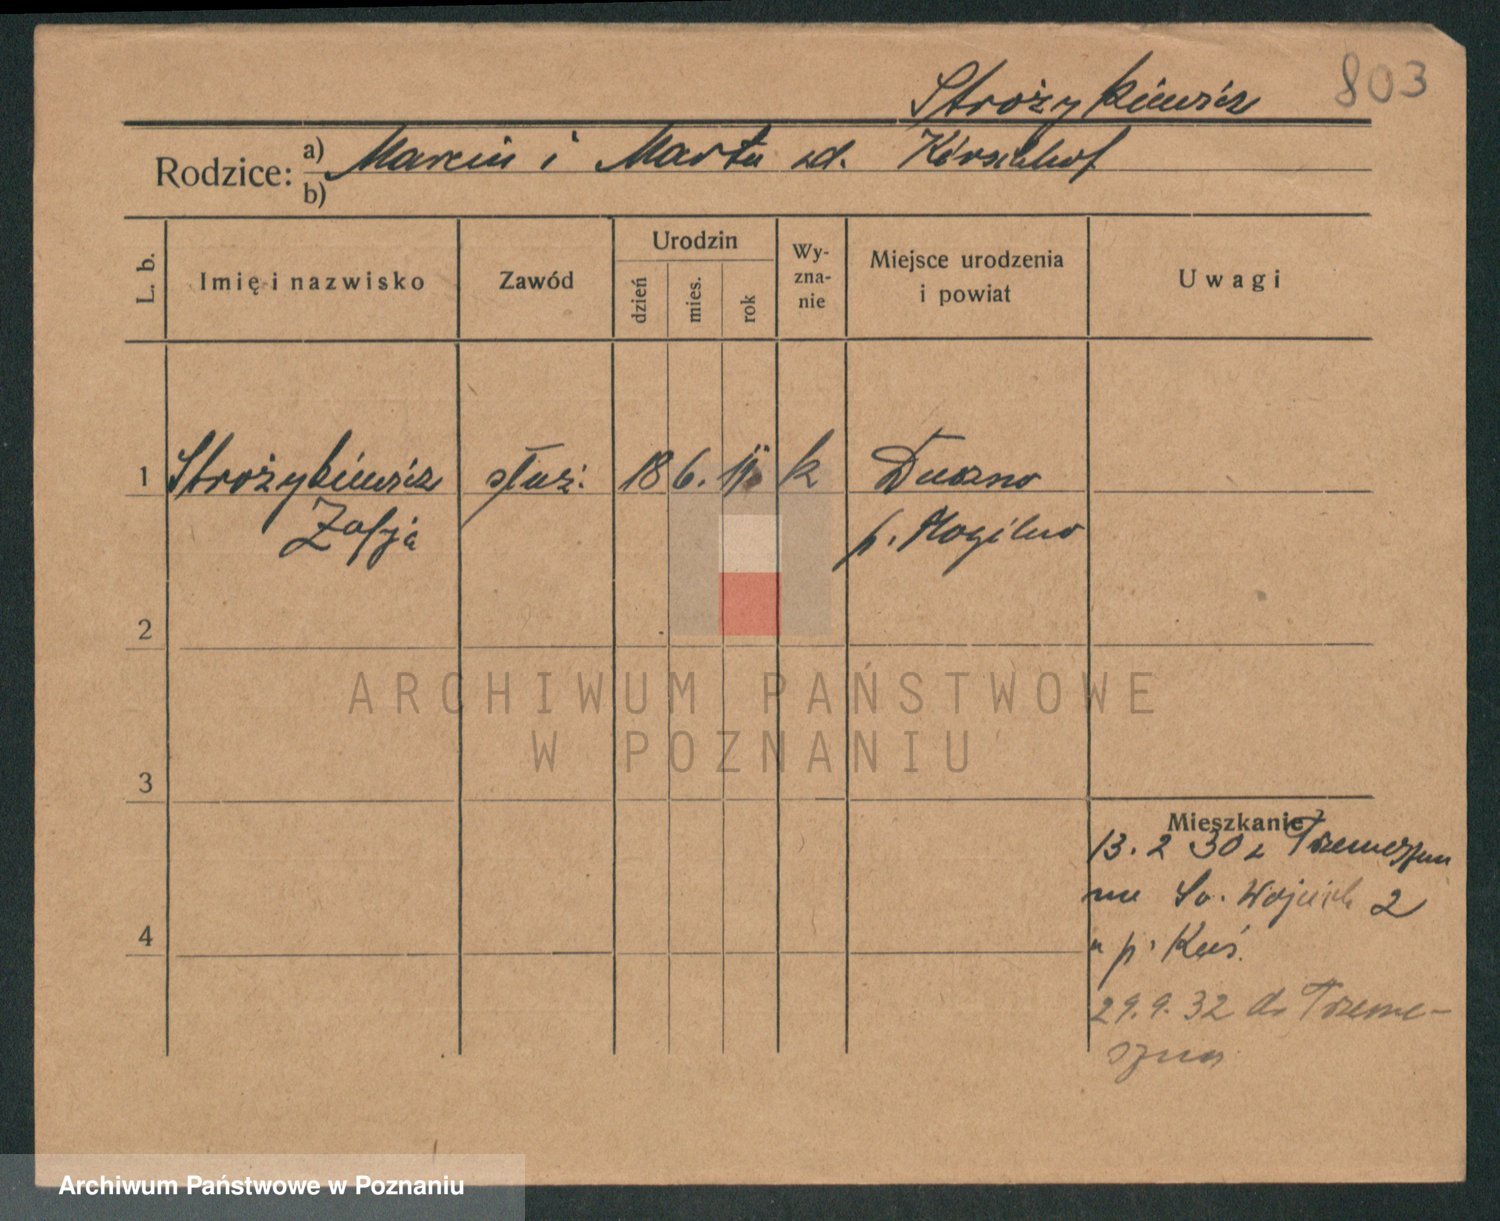 Strożykiewicz 803
Rodzice: a) Marcin i Marta zd.
b)
L. b.
Imię i nazwisko
Zawód
Urodzin
dzień
mies.
rok
Wy-
zna-
nie
Miejsce urodzenia
i powiat
Uwagi
1 Strożykiewicz służ. 18 6. 11 k Duszno
Zofja p. Mogilno
2
3
4
Mieszkanie
13. 2 30 z Trzemeszna
na Św. Wojciech 2
u p. Kuś.
29.9.32 do Trzeme-
szna
ARCHIWUM PAŃSTWOWE
W POZNANIU
Archiwum Państwowe w Poznaniu